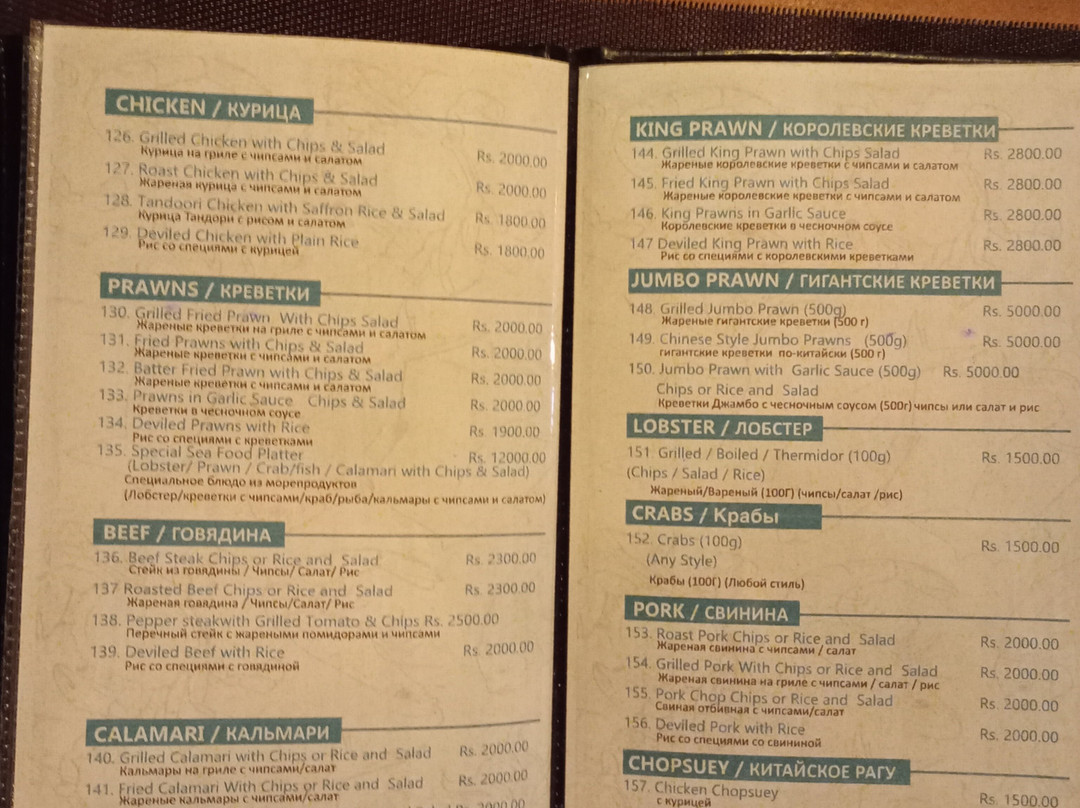 CHICKEN / КУРИЦА
126. Grilled Chicken with Chips & Salad Rs. 2000.00
Курица на гриле с чипсами и салатом
127. Roast Chicken with Chips & Salad Rs. 2000.00
Жареная курица с чипсами и салатом
128. Tandoori Chicken with Saffron Rice & Salad Rs. 1800.00
Курица Тандори с рисом и салатом
129. Deviled Chicken with Plain Rice Rs. 1800.00
Рис со специями с курицей
PRAWNS / КРЕВЕТКИ
130. Grilled Fried Prawn With Chips Salad Rs. 2000.00
Жареные креветки на гриле с чипсами и салатом
131. Fried Prawns with Chips & Salad Rs. 2000.00
Жареные креветки с чипсами и салатом
132. Batter Fried Prawn with Chips & Salad Rs. 2000.00
Жареные креветки с чипсами и салатом
133. Prawns in Garlic Sauce Chips & Salad Rs. 2000.00
Креветки в чесночном соусе
134. Deviled Prawns with Rice Rs. 1900.00
Рис со специями с креветками
135. Special Sea Food Platter Rs. 12000.00
(Lobster/ Prawn / Crab/fish / Calamari with Chips & Salad)
Специальное блюдо из морепродуктов
(Лобстер/креветки с чипсами/краб/рыба/кальмары с чипсами и салатом)
BEEF / ГОВЯДИНА
136. Beef Steak Chips or Rice and Salad Rs. 2300.00
Стейк из говядины / Чипсы/ Салат/ Рис
137 Roasted Beef Chips or Rice and Salad Rs. 2300.00
Жареная говядина / Чипсы/Салат/ Рис
138. Pepper steakwith Grilled Tomato & Chips Rs. 2500.00
Перечный стейк с жареными помидорами и чипсами
139. Deviled Beef with Rice Rs. 2000.00
Рис со специями с говядиной
CALAMARI / КАЛЬМАРИ
140. Grilled Calamari with Chips or Rice and Salad Rs. 2000.00
Кальмары на гриле с чипсами/салат
141. Fried Calamari With Chips or Rice and Salad Rs. 2000.00
Жареные кальмары с чипсами/салат
KING PRAWN / КОРОЛЕВСКИЕ КРЕВЕТКИ
144. Grilled King Prawn with Chips Salad Rs. 2800.00
Жареные королевские креветки с чипсами и салатом
145. Fried King Prawn with Chips Salad Rs. 2800.00
Жареные королевские креветки с чипсами и салатом
146. King Prawns in Garlic Sauce Rs. 2800.00
Королевские креветки в чесночном соусе
147 Deviled King Prawn with Rice Rs. 2800.00
Рис со специями с королевскими креветками
JUMBO PRAWN / ГИГАНТСКИЕ КРЕВЕТКИ
148. Grilled Jumbo Prawn (500g) Rs. 5000.00
Жареные гигантские креветки (500 г)
149. Chinese Style Jumbo Prawns (500g) Rs. 5000.00
гигантские креветки по-китайски (500 г)
150. Jumbo Prawn with Garlic Sauce (500g) Rs. 5000.00
Chips or Rice and Salad
Креветки Джамбо с чесночным соусом (500г) чипсы или салат и рис
LOBSTER / ЛОБСТЕР
151. Grilled / Boiled / Thermidor (100g) Rs. 1500.00
(Chips / Salad / Rice)
Жареный/Вареный (100Г) (чипсы/салат /рис)
CRABS / Крабы
152. Crabs (100g) Rs. 1500.00
(Any Style)
Крабы (100Г) (Любой стиль)
PORK / СВИНИНА
153. Roast Pork Chips or Rice and Salad Rs. 2000.00
Жареная свинина с чипсами / салат
154. Grilled Pork With Chips or Rice and Salad Rs. 2000.00
Жареная свинина на гриле с чипсами / салат / рис
155. Pork Chop Chips or Rice and Salad Rs. 2000.00
Свиная отбивная с чипсами/салат
156. Deviled Pork with Rice Rs. 2000.00
Рис со специями со свининой
CHOPSUEY / КИТАЙСКОЕ РАГУ
157. Chicken Chopsuey Rs. 1500.00
с курицей